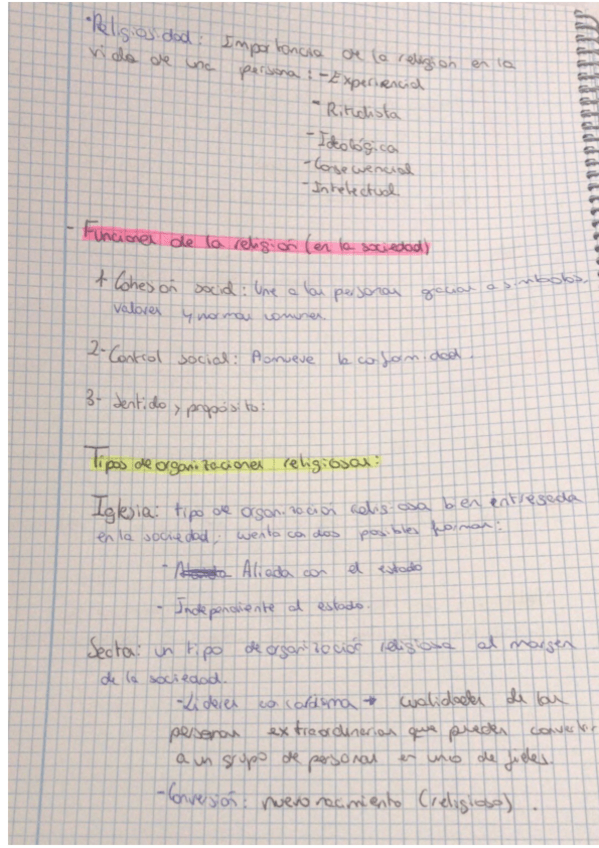 ·Religiosidad: Importancia de la religión en la
vida de una persona: - Experiencial
- Ritualista
- Ideológica
- Consecuencial
- Intelectual
- Funciones de la religión (en la sociedad)
1 Cohesión social: Une a las personas gracias a símbolos,
valores y normas comunes.
2- Control social: Promueve la conformidad.
3- Sentido y propósito:
Tipos de organizaciones religiosas:
Iglesia: tipo de organización religiosa bien
en la sociedad, cuenta con dos posibles formas:
- Aliada con el estado
- Independiente al estado.
Secta: un tipo de organización religiosa al margen
de la sociedad.
- Líderes con carisma → cualidades de las
personas extraordinarias que pueden convertir
a un grupo de personas en uno de fieles.
- Conversión: nuevo nacimiento (religioso).